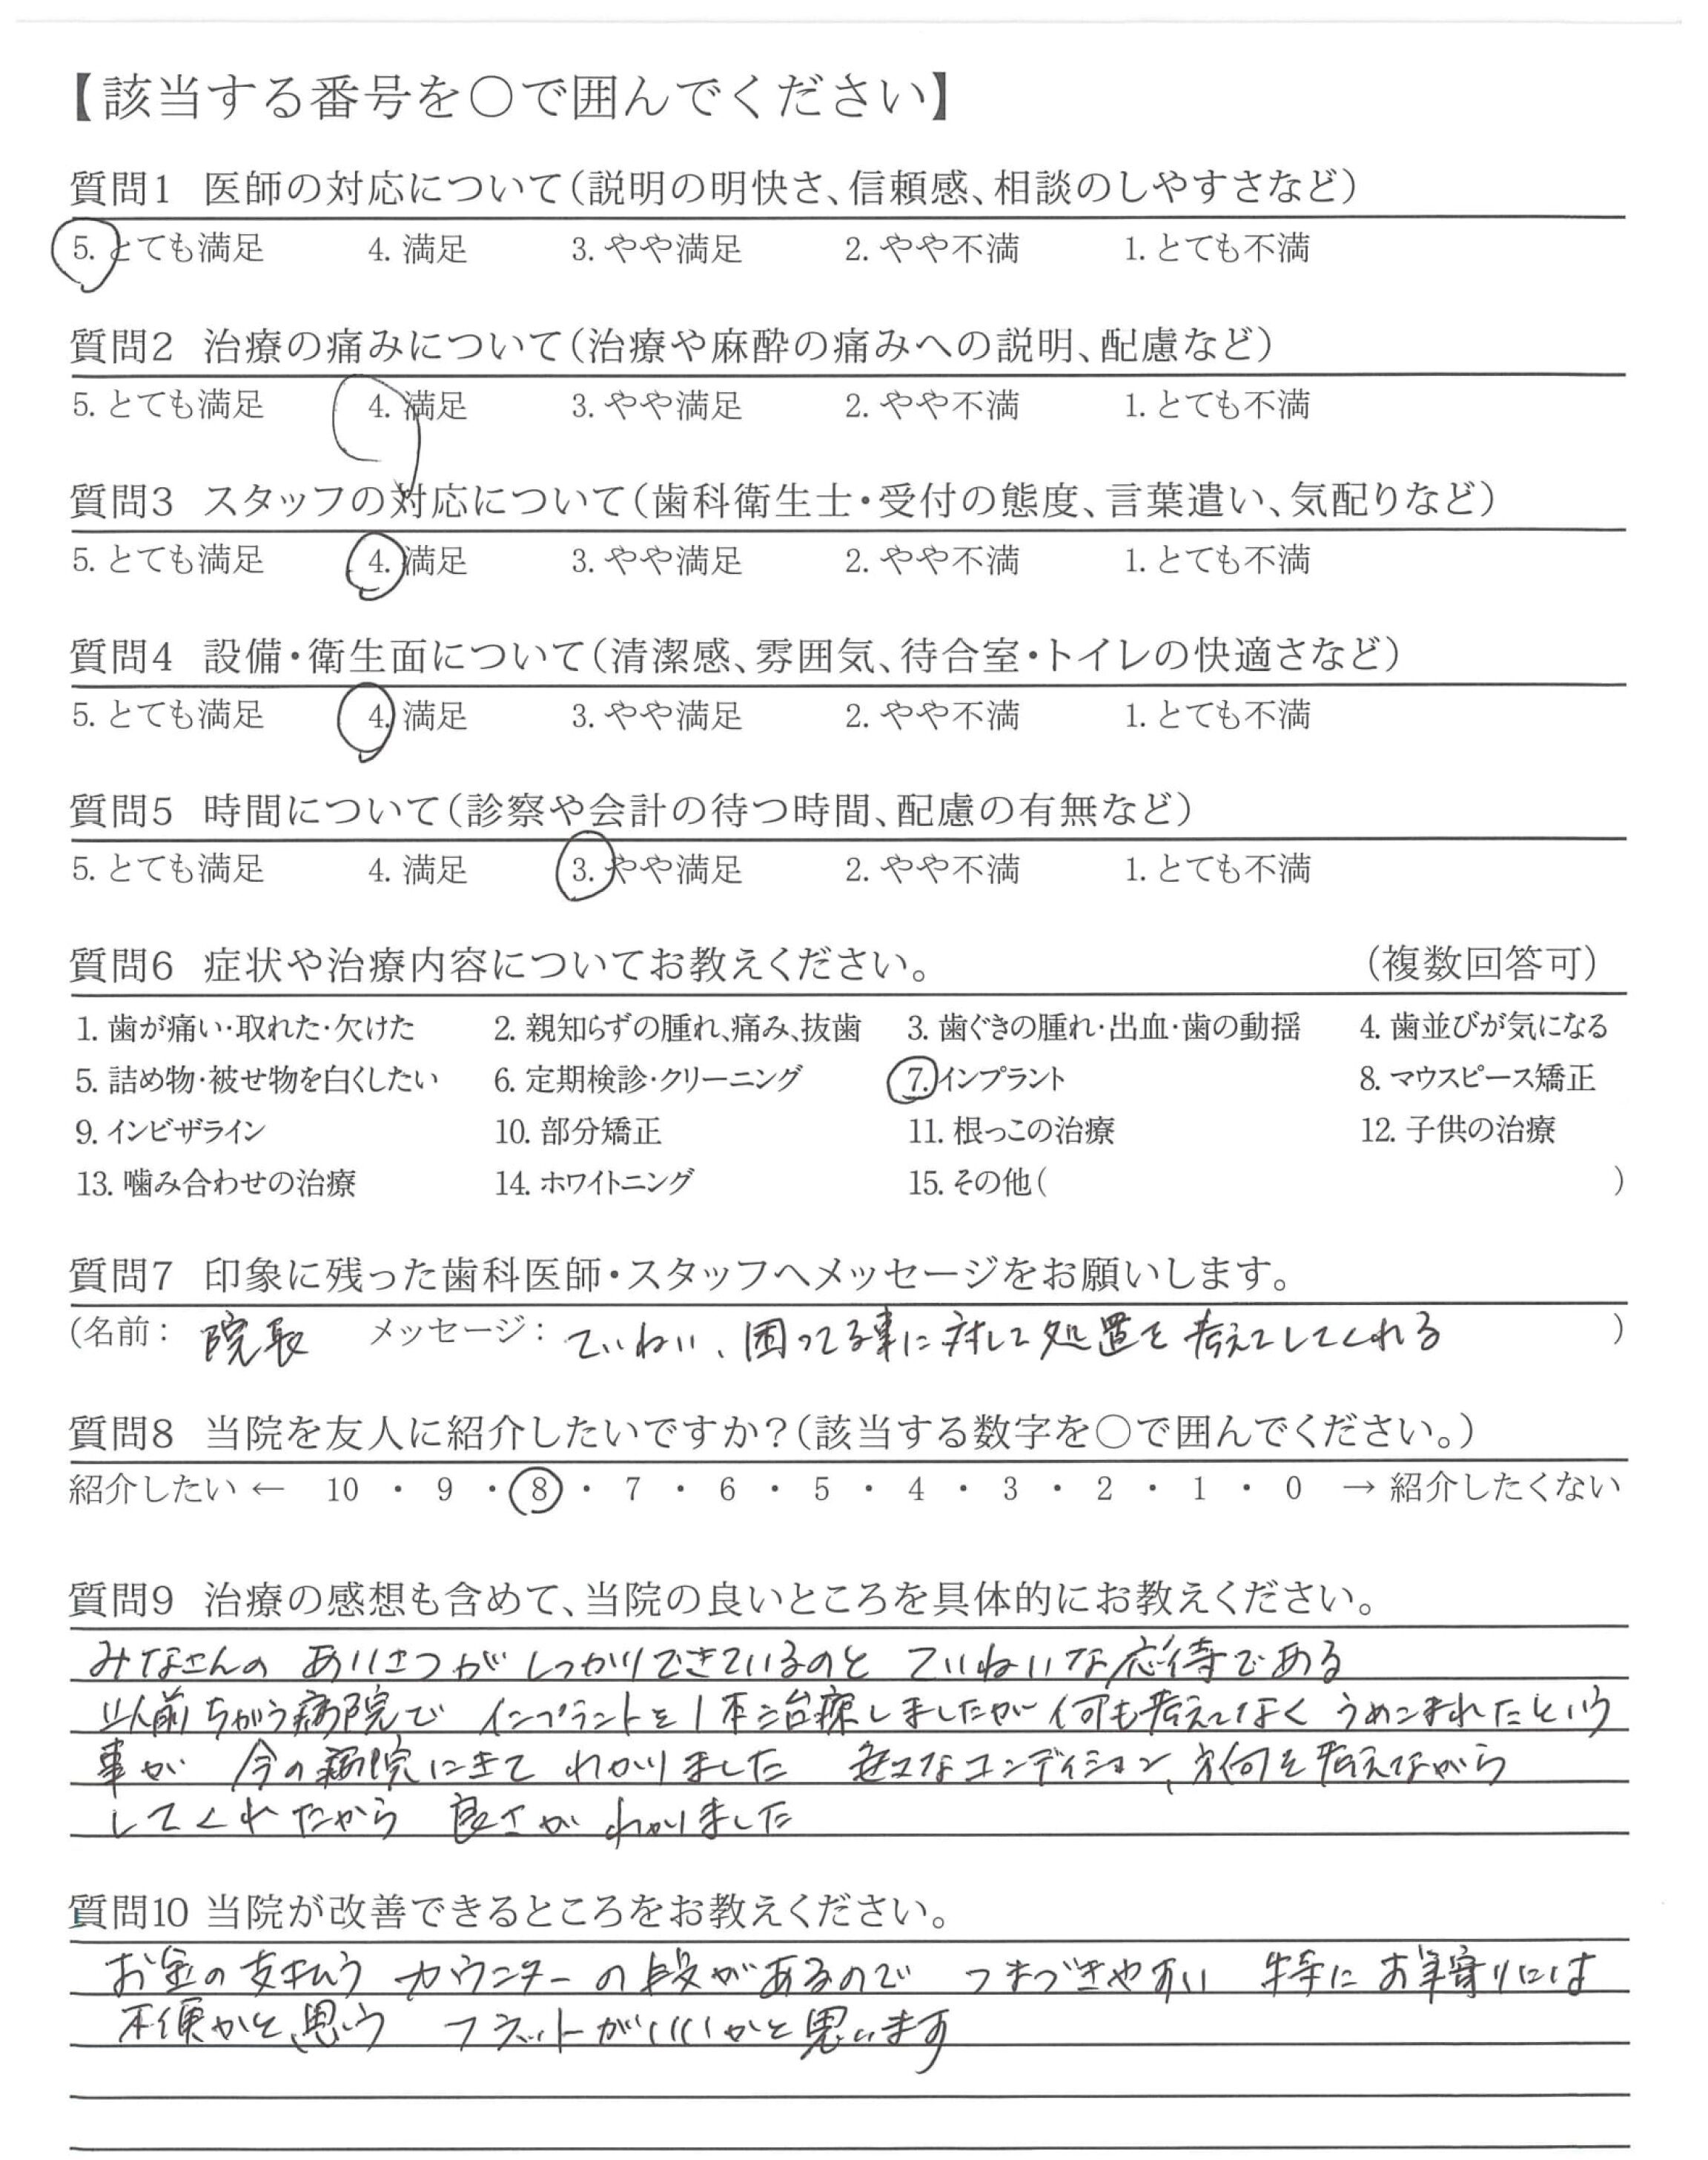 【該当する番号を○で囲んでください】
質問1 医師の対応について(説明の明快さ、信頼感、相談のしやすさなど)
5. とても満足 4. 満足 3. やや満足 2. やや不満 1. とても不満
質問2 治療の痛みについて(治療や麻酔の痛みへの説明、配慮など)
5. とても満足 4. 満足 3. やや満足 2. やや不満 1. とても不満
質問3 スタッフの対応について(歯科衛生士・受付の態度、言葉遣い、気配りなど)
5. とても満足 4. 満足 3. やや満足 2. やや不満 1. とても不満
質問4 設備・衛生面について(清潔感、雰囲気、待合室・トイレの快適さなど)
5. とても満足 4. 満足 3. やや満足 2. やや不満 1. とても不満
質問5 時間について(診察や会計の待つ時間、配慮の有無など)
5. とても満足 4. 満足 3. やや満足 2. やや不満 1. とても不満
質問6 症状や治療内容についてお教えください。 (複数回答可)
1. 歯が痛い・取れた・欠けた 2. 親知らずの腫れ、痛み、抜歯 3. 歯ぐきの腫れ・出血・歯の動揺 4. 歯並びが気になる
5. 詰め物・被せ物を白くしたい 6. 定期検診・クリーニング 7. インプラント 8. マウスピース矯正
9. インビザライン 10. 部分矯正 11. 根っこの治療 12. 子供の治療
13. 噛み合わせの治療 14. ホワイトニング 15. その他( )
質問7 印象に残った歯科医師・スタッフへメッセージをお願いします。
(名前: 院長 メッセージ: ていねい、困ってる事に対して処置を考えてしてくれる )
質問8 当院を友人に紹介したいですか?(該当する数字を○で囲んでください。)
紹介したい ← 10 ・ 9 ・ 8 ・ 7 ・ 6 ・ 5 ・ 4 ・ 3 ・ 2 ・ 1 ・ 0 → 紹介したくない
質問9 治療の感想も含めて、当院の良いところを具体的にお教えください。
みなさんの あいさつが しっかりできているのと ていねいな応待である
以前ちがう病院で インプラントを1本治療しましたが 何も考えてなく うめこまれたという
事が 今の病院にきて わかりました 色々なコンディション、方向を考えながら
してくれたから 良さが わかりました
質問10 当院が改善できるところをお教えください。
お金の支払う カウンターの段があるので つまづきやすい 特にお年寄りには
不便かと思う フラットがいいかと思います